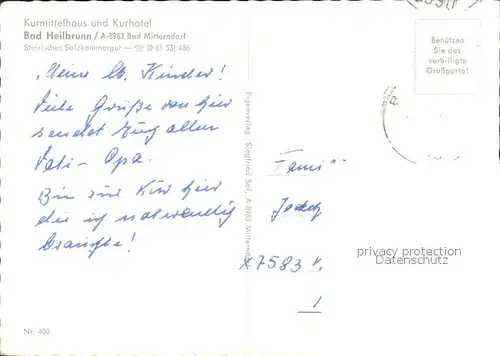 Kurmittelhaus und Kurhotel
Bad Heilbrunn / A-8983 Bad Mitterndorf
Steirisches Salzkammergut — ☏ (0 61 53) 486
Benützen
Sie das
verbilligte
Grußporto!
Meine lb. Kinder!
Viele Grüße von hier
sendet Euch allen
Vati - Opa.
Bin zur Kur hier
die ich notwendig
brauchte!
Eigenverlag Siegfried Sol, A-8983 Mitterndorf
Fami
7583
1
privacy protection
Datenschutz
Nr. 400